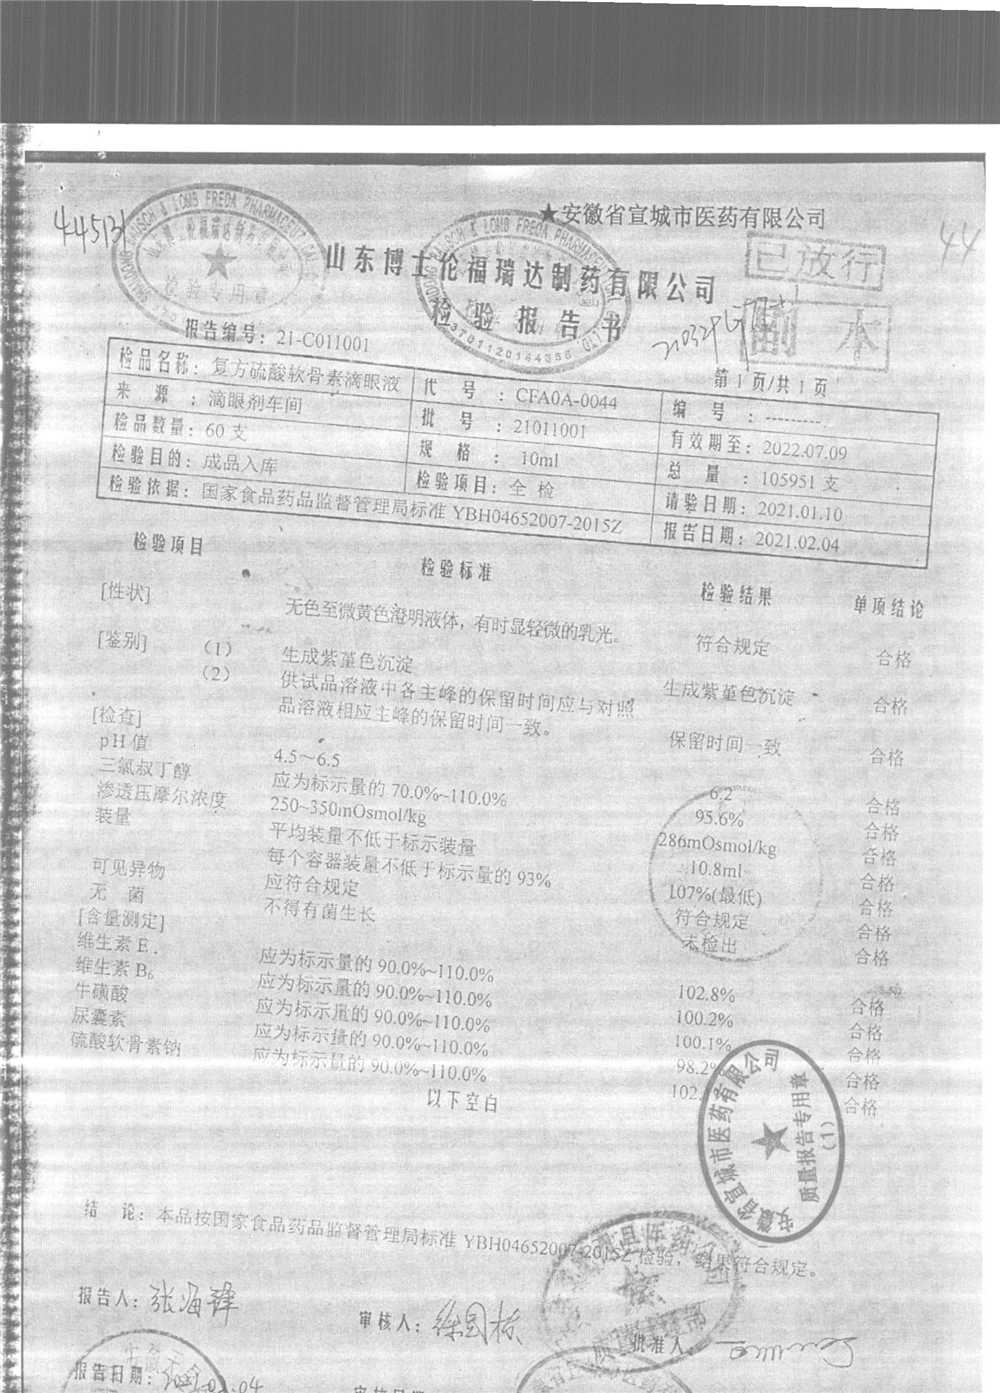 445131
★安徽省宣城市医药有限公司
44
山东博士伦福瑞达制药有限公司
检验报告书
已放行
副本
检验专用章
3701120144356
报告编号：21-C011001
第 1 页/共 1 页
检品名称：复方硫酸软骨素滴眼液 代 号 ：CFA0A-0044 编 号 ：---------
来 源 ：滴眼剂车间 批 号 ：21011001 有效期至：2022.07.09
检品数量：60 支 规 格 ：10ml 总 量 ：105951 支
检验目的：成品入库 检验项目：全 检 请验日期：2021.01.10
检验依据：国家食品药品监督管理局标准 YBH04652007-2015Z 报告日期：2021.02.04
检验项目 检验标准 检验结果 单项结论
[性状] 无色至微黄色澄明液体，有时显轻微的乳光。 符合规定 合格
[鉴别] （1） 生成紫堇色沉淀 生成紫堇色沉淀 合格
（2） 供试品溶液中各主峰的保留时间应与对照
品溶液相应主峰的保留时间一致。 保留时间一致 合格
[检查]
pH 值 4.5～6.5 6.2 合格
三氯叔丁醇 应为标示量的 70.0%~110.0% 95.6% 合格
渗透压摩尔浓度 250~350mOsmol/kg 286mOsmol/kg 合格
装量 平均装量不低于标示装量 10.8ml 合格
每个容器装量不低于标示量的 93% 107%(最低) 合格
可见异物 应符合规定 符合规定 合格
无 菌 不得有菌生长 未检出 合格
[含量测定]
维生素 E 应为标示量的 90.0%~110.0% 102.8% 合格
维生素 B₆ 应为标示量的 90.0%~110.0% 100.2% 合格
牛磺酸 应为标示量的 90.0%~110.0% 100.1% 合格
尿囊素 应为标示量的 90.0%~110.0% 98.2% 合格
硫酸软骨素钠 应为标示量的 90.0%~110.0% 102. 合格
以下空白
安徽省宣城市医药有限公司
质量报告专用章
（1）
结 论：本品按国家食品药品监督管理局标准 YBH04652007-2015Z 检验，结果符合规定。
报告人：张海锋 审核人：徐国栋 批准人：
报告日期：2021.02.04